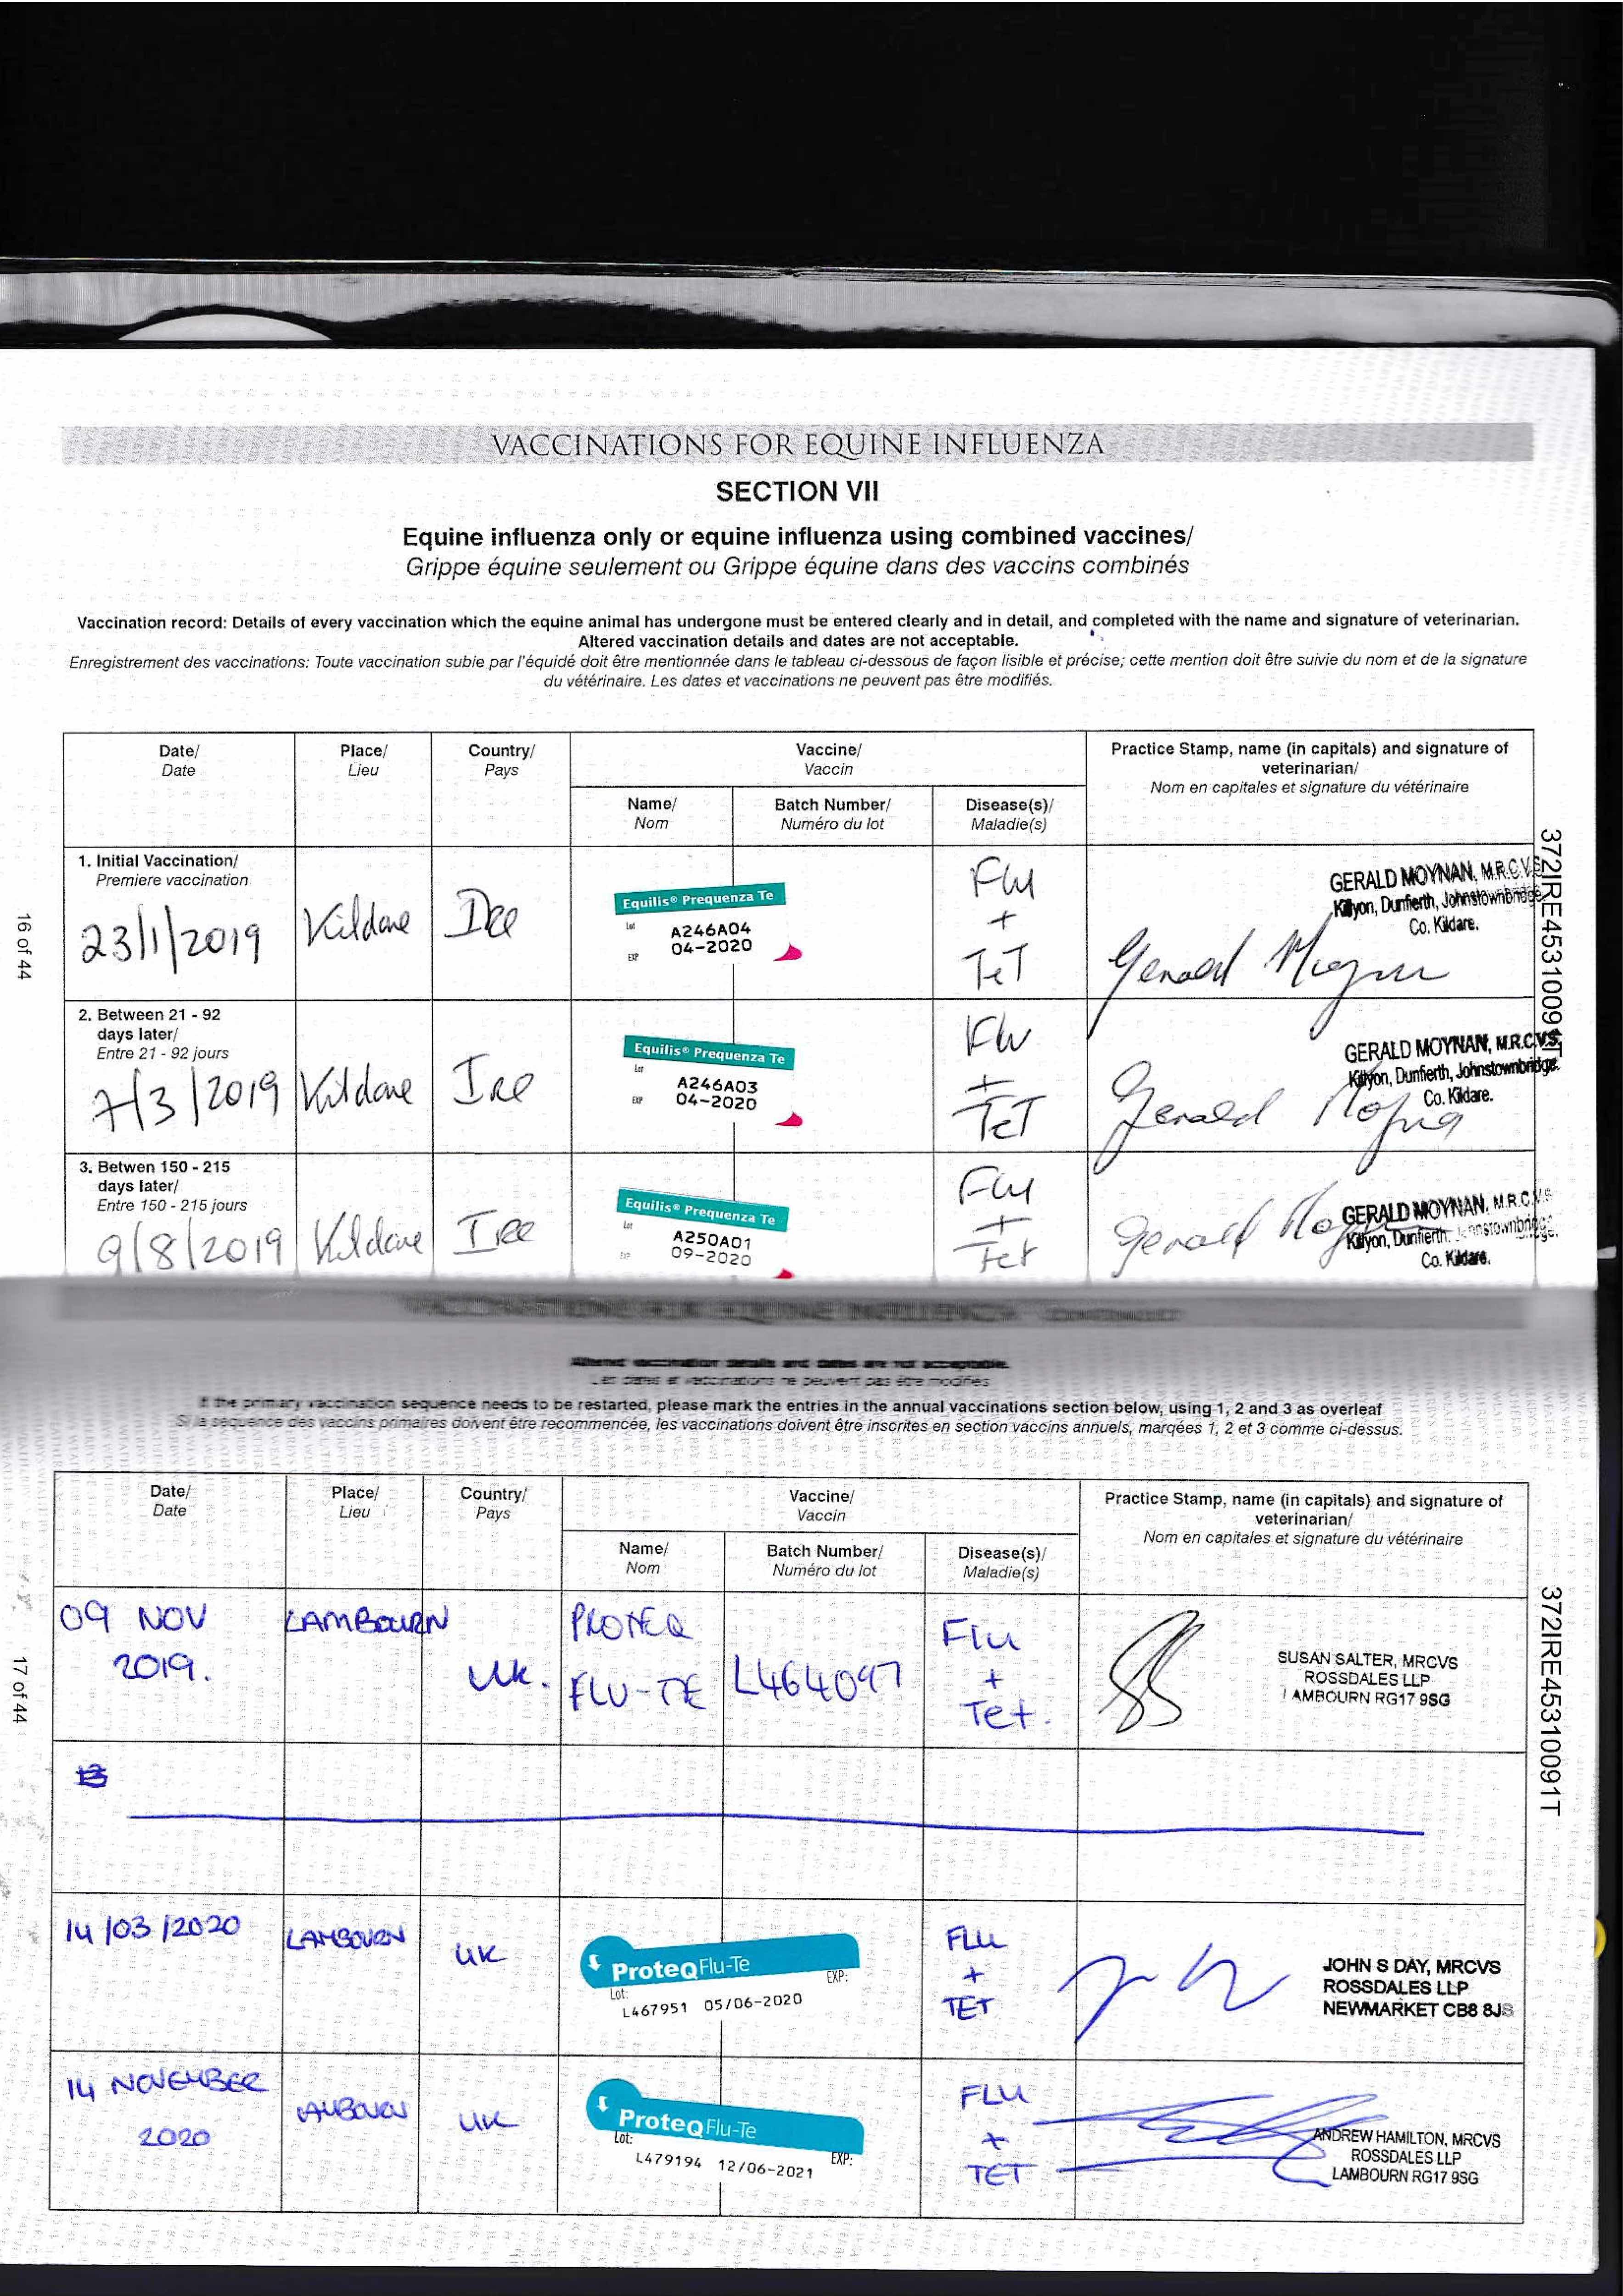 VACCINATIONS FOR EQUINE INFLUENZA
SECTION VII
Equine influenza only or equine influenza using combined vaccines/
Grippe équine seulement ou Grippe équine dans des vaccins combinés
Vaccination record: Details of every vaccination which the equine animal has undergone must be entered clearly and in detail, and completed with the name and signature of veterinarian.
Altered vaccination details and dates are not acceptable.
Enregistrement des vaccinations: Toute vaccination subie par l'équidé doit être mentionnée dans le tableau ci-dessous de façon lisible et précise; cette mention doit être suivie du nom et de la signature
du vétérinaire. Les dates et vaccinations ne peuvent pas être modifiés.
Date/
Date
Place/
Lieu
Country/
Pays
Vaccine/
Vaccin
Practice Stamp, name (in capitals) and signature of
veterinarian/
Nom en capitales et signature du vétérinaire
Name/
Nom
Batch Number/
Numéro du lot
Disease(s)/
Maladie(s)
1. Initial Vaccination/
Premiere vaccination
23/1/2019
Kildare
Ire
Equilis® Prequenza Te
Lot
A246A04
EXP
04-2020
Flu
+
TeT
GERALD MOYNAN, M.R.C.V.S
Killyon, Dunfierth, Johnstownbridge,
Co. Kildare.
Gerald Moynan
2. Between 21 - 92
days later/
Entre 21 - 92 jours
7/3/2019
Kildare
Ire
Equilis® Prequenza Te
Lot
A246A03
EXP
04-2020
Flu
+
TeT
GERALD MOYNAN, M.R.C.V.S,
Killyon, Dunfierth, Johnstownbridge.
Co. Kildare.
Gerald Moynan
3. Betwen 150 - 215
days later/
Entre 150 - 215 jours
9/8/2019
Kildare
Ire
Equilis® Prequenza Te
Lot
A250A01
EXP
09-2020
Flu
+
Tet
Gerald
GERALD MOYNAN, M.R.C.V.S
Killyon, Dunfierth, Johnstownbridge.
Co. Kildare.
16 of 44
372IRE45310091T
VACCINATIONS FOR EQUINE INFLUENZA
Altered vaccination details and dates are not acceptable.
Les dates et vaccinations ne peuvent pas être modifiés
If the primary vaccination sequence needs to be restarted, please mark the entries in the annual vaccinations section below, using 1, 2 and 3 as overleaf
Si la séquence des vaccins primaires doivent être recommencée, les vaccinations doivent être inscrites en section vaccins annuels, marqées 1, 2 et 3 comme ci-dessus.
Date/
Date
Place/
Lieu
Country/
Pays
Vaccine/
Vaccin
Practice Stamp, name (in capitals) and signature of
veterinarian/
Nom en capitales et signature du vétérinaire
Name/
Nom
Batch Number/
Numéro du lot
Disease(s)/
Maladie(s)
09 NOV
2019.
LAMBOURN
UK.
PROTEQ
FLU-TE
L464097
Flu
+
Tet.
SUSAN SALTER, MRCVS
ROSSDALES LLP
LAMBOURN RG17 9SG
14/03/2020
LAMBOURN
UK
ProteqFlu-Te
Lot:
EXP:
L467951 05/06-2020
FLU
+
TET
JOHN S DAY, MRCVS
ROSSDALES LLP
NEWMARKET CB8 8JS
14 NOVEMBER
2020
LAMBOURN
UK
ProteqFlu-Te
Lot:
EXP:
L479194 12/06-2021
FLU
+
TET
ANDREW HAMILTON, MRCVS
ROSSDALES LLP
LAMBOURN RG17 9SG
17 of 44
372IRE45310091T